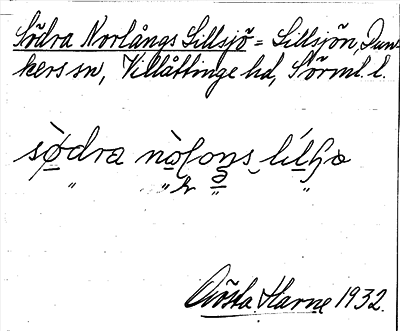 Södra Norlångs Lillsjö = Lillsjön, Dun-
kers sn, Villåttinge hd, Sörml. l.
södra
Gösta Harne 1932.